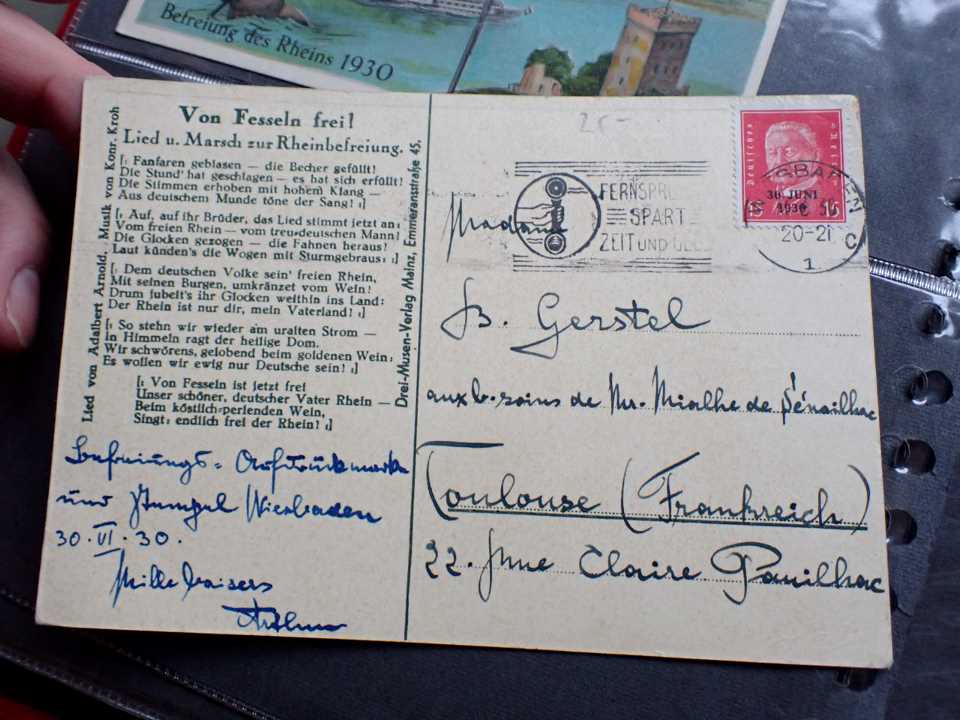 Befreiung des Rheins 1930
Von Fesseln frei!
Lied u. Marsch zur Rheinbefreiung.
[: Fanfaren geblasen — die Becher gefüllt!
Die Stund' hat geschlagen — es hat sich erfüllt!
Die Stimmen erhoben mit hohem Klang —
Aus deutschem Munde töne der Sang! :]
[: Auf, auf ihr Brüder, das Lied stimmt jetzt an:
Vom freien Rhein — vom treu-deutschen Mann!
Die Glocken gezogen — die Fahnen heraus!
Laut künden's die Wogen mit Sturmgebraus: :]
[: Dem deutschen Volke sein' freien Rhein,
Mit seinen Burgen, umkränzet vom Wein!
Drum jubelt's ihr Glocken weithin ins Land:
Der Rhein ist nur dir, mein Vaterland! :]
[: So stehn wir wieder am uralten Strom —
In Himmeln ragt der heilige Dom.
Wir schwörens, gelobend beim goldenen Wein:
Es wollen wir ewig nur Deutsche sein! :]
[: Von Fesseln ist jetzt frei
Unser schöner, deutscher Vater Rhein —
Beim köstlich-perlenden Wein,
Singt: endlich frei der Rhein! :]
Lied von Adalbert Arnold. Musik von Konr. Kroh
Drei-Musen-Verlag Mainz, Emmeransstraße 45.
Befreiungs-Aufdruckmarke
und Stempel Wiesbaden
30.VI.30.
Mille baisers
Arthur
25-
FERNSPR
SPART
ZEIT UND GEL
Deutsches Reich
30. JUNI
1930
15 15
SBADEN
20-21
1 C
Madame
B. Gerstel
aux b. soins de Mr. Mialhe de Sénailhac
Toulouse (Frankreich)
22. Jmue Claire Pauilhac